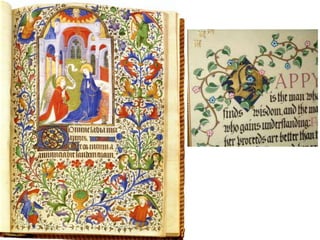 Domine labia mea
aperies.
annunciabit laudem tuam.
HAPPY
is the man who
finds wisdom, and the ma
who gains understanding: F
her proceeds are better than t